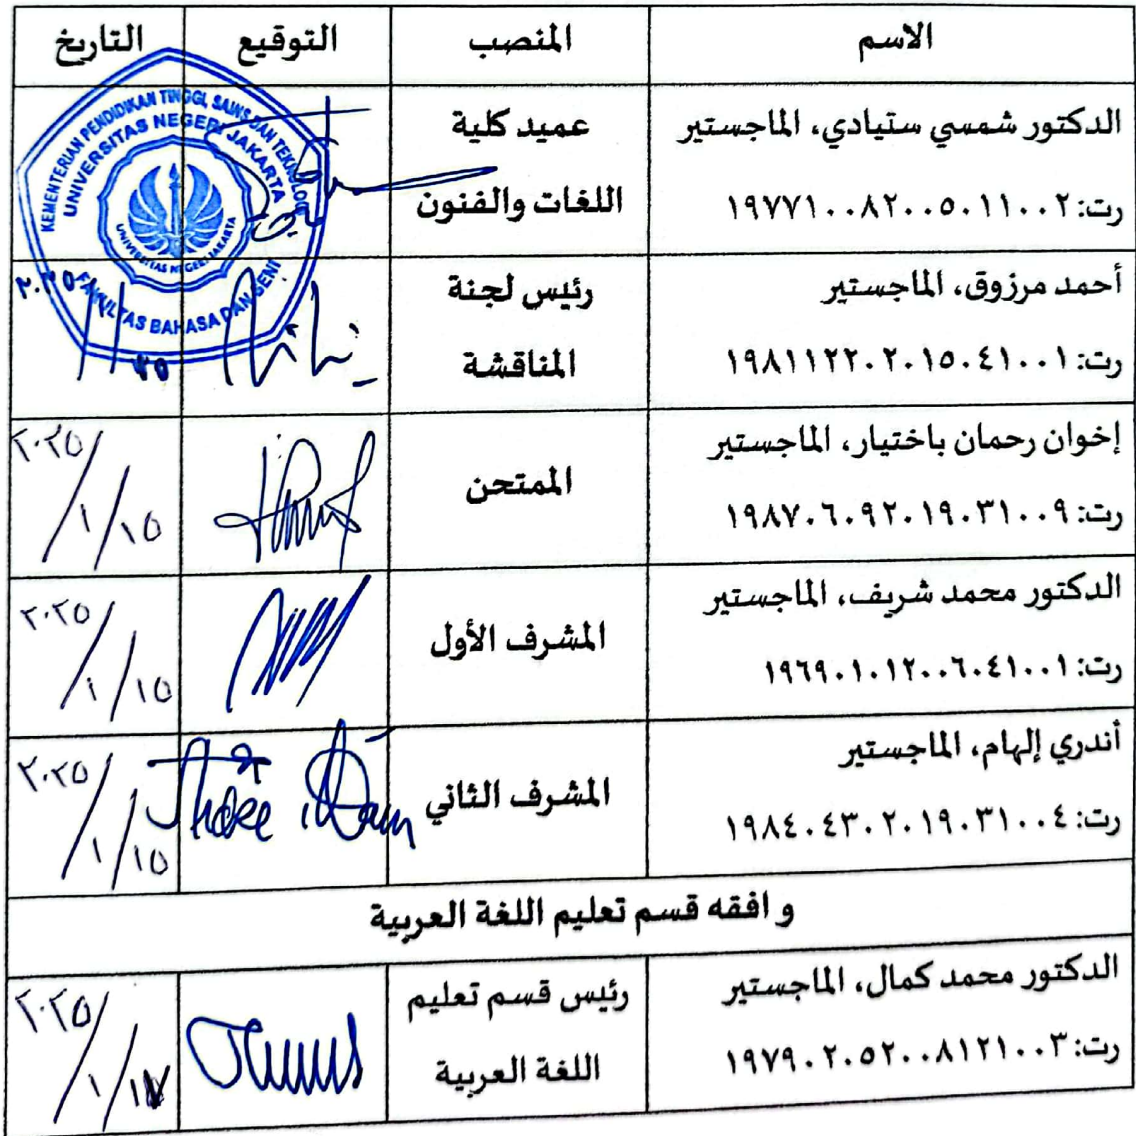 الاسم المنصب التوقيع التاريخ
الدكتور شمسي ستيادي، الماجستير
رت: ١٩٧٧١٠٠٨٢٠٠٥٠١١٠٠٢
عميد كلية
اللغات والفنون
KEMENTERIAN PENDIDIKAN TINGGI, SAINS DAN TEKNOLOGI
UNIVERSITAS NEGERI JAKARTA
UNIVERSITAS NEGERI JAKARTA
FAKULTAS BAHASA DAN SENI
أحمد مرزوق، الماجستير
رت: ١٩٨١١٢٢٢٠٢٠١٥٠٤١٠٠١
رئيس لجنة
المناقشة
إخوان رحمان باختيار، الماجستير
رت: ١٩٨٧٠٦٠٩٢٠١٩٠٣١٠٠٩
الممتحن
٢٠٢٥/١/١٥
الدكتور محمد شريف، الماجستير
رت: ١٩٦٩٠١٠١٢٠٠٦٠٤١٠٠١
المشرف الأول
٢٠٢٥/١/١٥
أندري إلهام، الماجستير
رت: ١٩٨٤٠٤٣٠٢٠١٩٠٣١٠٠٤
المشرف الثاني
٢٠٢٥/١/١٥
و افقه قسم تعليم اللغة العربية
الدكتور محمد كمال، الماجستير
رت: ١٩٧٩٠٢٠٥٢٠٠٨١٢١٠٠٣
رئيس قسم تعليم
اللغة العربية